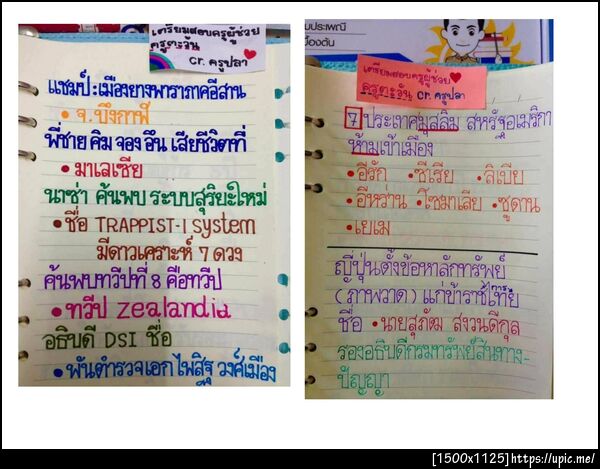 เตรียมสอบครูผู้ช่วย
ครูตะวัน
cr. ครูปลา
แชมป์ : เมืองยางพาราภาคอีสาน
• จ. บึงกาฬ
พี่ชาย คิม จอง อึน เสียชีวิตที่
• มาเลเซีย
นาซ่า ค้นพบ ระบบสุริยะใหม่
• ชื่อ TRAPPIST-1 System
มีดาวเคราะห์ 7 ดวง
ค้นพบทวีปที่ 8 คือทวีป
• ทวีป zealandia
อธิบดี DSI ชื่อ
• พันตำรวจเอก ไพสิฐ วงศ์เมือง
มประเพณี
เบื้องต้น
เตรียมสอบครูผู้ช่วย
ครูตะวัน cr. ครูปลา
7 ประเทศมุสลิม สหรัฐอเมริกา
ห้ามเข้าเมือง
• อีรัก • ซีเรีย • ลิเบีย
• อีหร่าน • โซมาเลีย • ซูดาน
• เยเม
ญี่ปุ่นตั้งข้อหาลักทรัพย์
(ภาพวาด) แก่ข้าราชการไทย
ชื่อ • นายสุภัฒ สงวนดีกุล
รองอธิบดีกรมทรัพย์สินทาง-
ปัญญา
[1500x1125]https://upic.me/